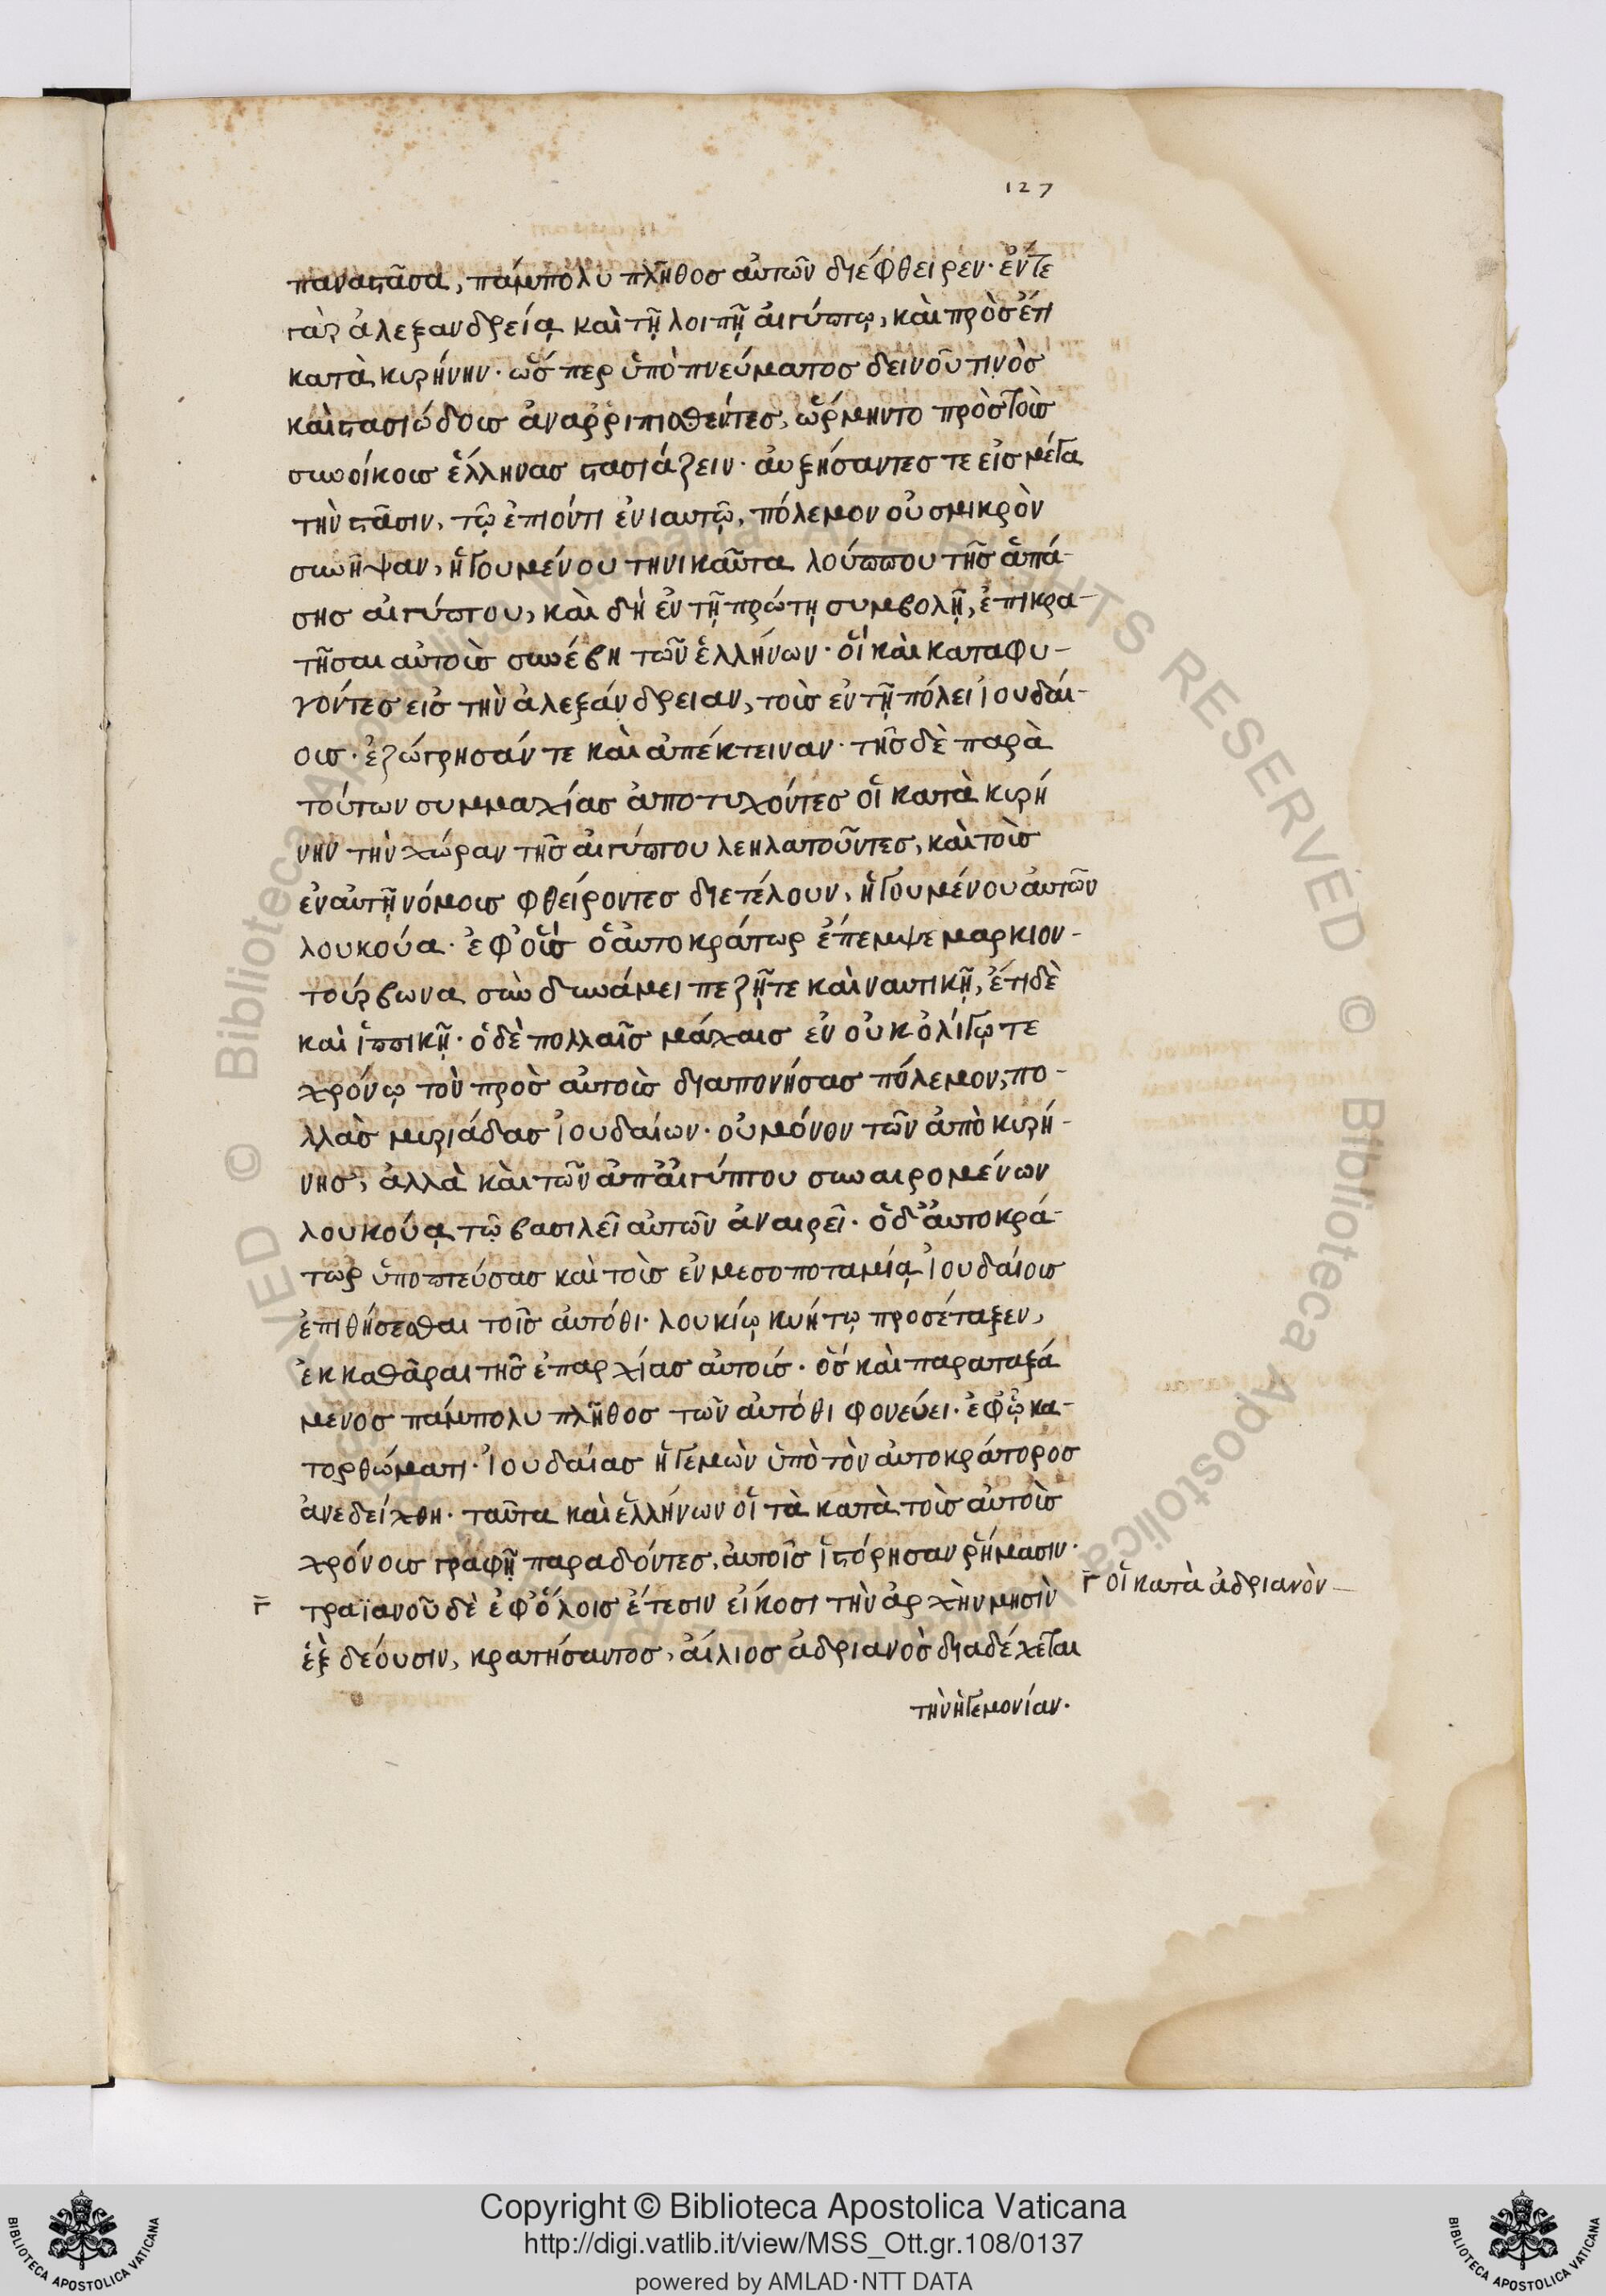 127
παναστᾶσα, πάμπολυ πλῆθος αὐτῶν διέφθειρεν· ἔν τε
γὰρ ἀλεξανδρείᾳ καὶ τῇ λοιπῇ αἰγύπτῳ, καὶ προσέτι
κατὰ κυρήνην· ὥσπερ ὑπὸ πνεύματος δεινοῦ τινὸς
καὶ στασιώδους ἀναῤῥιπισθέντες, ὥρμηντο πρὸς τοὺς
συνοίκους ἕλληνας στασιάζειν· αὐξήσαντες τε εἰς μέγα
τὴν στᾶσιν, τῷ ἐπιόντι ἐνιαυτῷ, πόλεμον οὐ σμικρὸν
συνῆψαν, ἡγουμένου τηνικαῦτα λούππου τῆς ἁπά-
σης αἰγύπτου, καὶ δὴ ἐν τῇ πρώτῃ συμβολῇ, ἐπικρα-
τῆσαι αὐτοὺς συνέβη τῶν ἑλλήνων· οἳ καὶ καταφυ-
γόντες εἰς τὴν ἀλεξάνδρειαν, τοὺς ἐν τῇ πόλει ἰουδαί-
ους· ἐζώγρησάν τε καὶ ἀπέκτειναν· τῆς δὲ παρὰ
τούτων συμμαχίας ἀποτυχόντες οἱ κατὰ κυρή
νην τὴν χώραν τῆς αἰγύπτου λεηλατοῦντες, καὶ τοὺς
ἐν αὐτῇ νόμους φθείροντες διετέλουν, ἡγουμένου αὐτῶν
λουκούα· ἐφ' οὓς ὁ αὐτοκράτωρ ἔπεμψε μάρκιον-
τούρβωνα σὺν δυνάμει πεζῇ τε καὶ ναυτικῇ, ἔτι δὲ
καὶ ἱππικῇ· ὁ δὲ πολλαῖς μάχαις ἐν οὐκ ὀλίγῳ τε
χρόνῳ τὸν πρὸς αὐτοὺς διαπονήσας πόλεμον, πο-
λλὰς μυριάδας ἰουδαίων· οὐ μόνον τῶν ἀπὸ κυρή-
νης, ἀλλὰ καὶ τῶν ἀπ' αἰγύπτου συναιρομένων
λουκούᾳ τῷ βασιλεῖ αὐτῶν ἀναιρεῖ· ὁ δ' αὐτοκρά-
τωρ ὑποπτεύσας καὶ τοὺς ἐν μεσοποταμίᾳ ἰουδαίους
ἐπιθήσεσθαι τοῖς αὐτόθι· λουκίῳ κυήτῳ προσέταξεν,
ἐκκαθᾶραι τῆς ἐπαρχίας αὐτούς· ὃς καὶ παραταξά
μενος πάμπολυ πλῆθος τῶν αὐτόθι φονεύει· ἐφ' ᾧ κα-
τορθώματι· ἰουδαίας ἡγεμὼν ὑπὸ τὸν αὐτοκράτορος
ἀνεδείχθη· ταῦτα καὶ ἑλλήνων οἱ τὰ κατὰ τοὺς αὐτοὺς
χρόνους γραφῇ παραδόντες, αὐτοῖς ἱστόρησαν ῥήμασιν·
γ̄ τραϊανοῦ δὲ ἐφ' ὅλοις ἔτεσιν εἴκοσι τὴν ἀρχὴν μησὶν
γ̄ οἱ κατὰ ἀδριανὸν
ἓξ δέουσιν, κρατήσαντος, αἴλιος ἀδριανὸς διαδέχεται
τὴν ἡγεμονίαν.
Copyright © Biblioteca Apostolica Vaticana
http://digi.vatlib.it/view/MSS_Ott.gr.108/0137
powered by AMLAD·NTT DATA